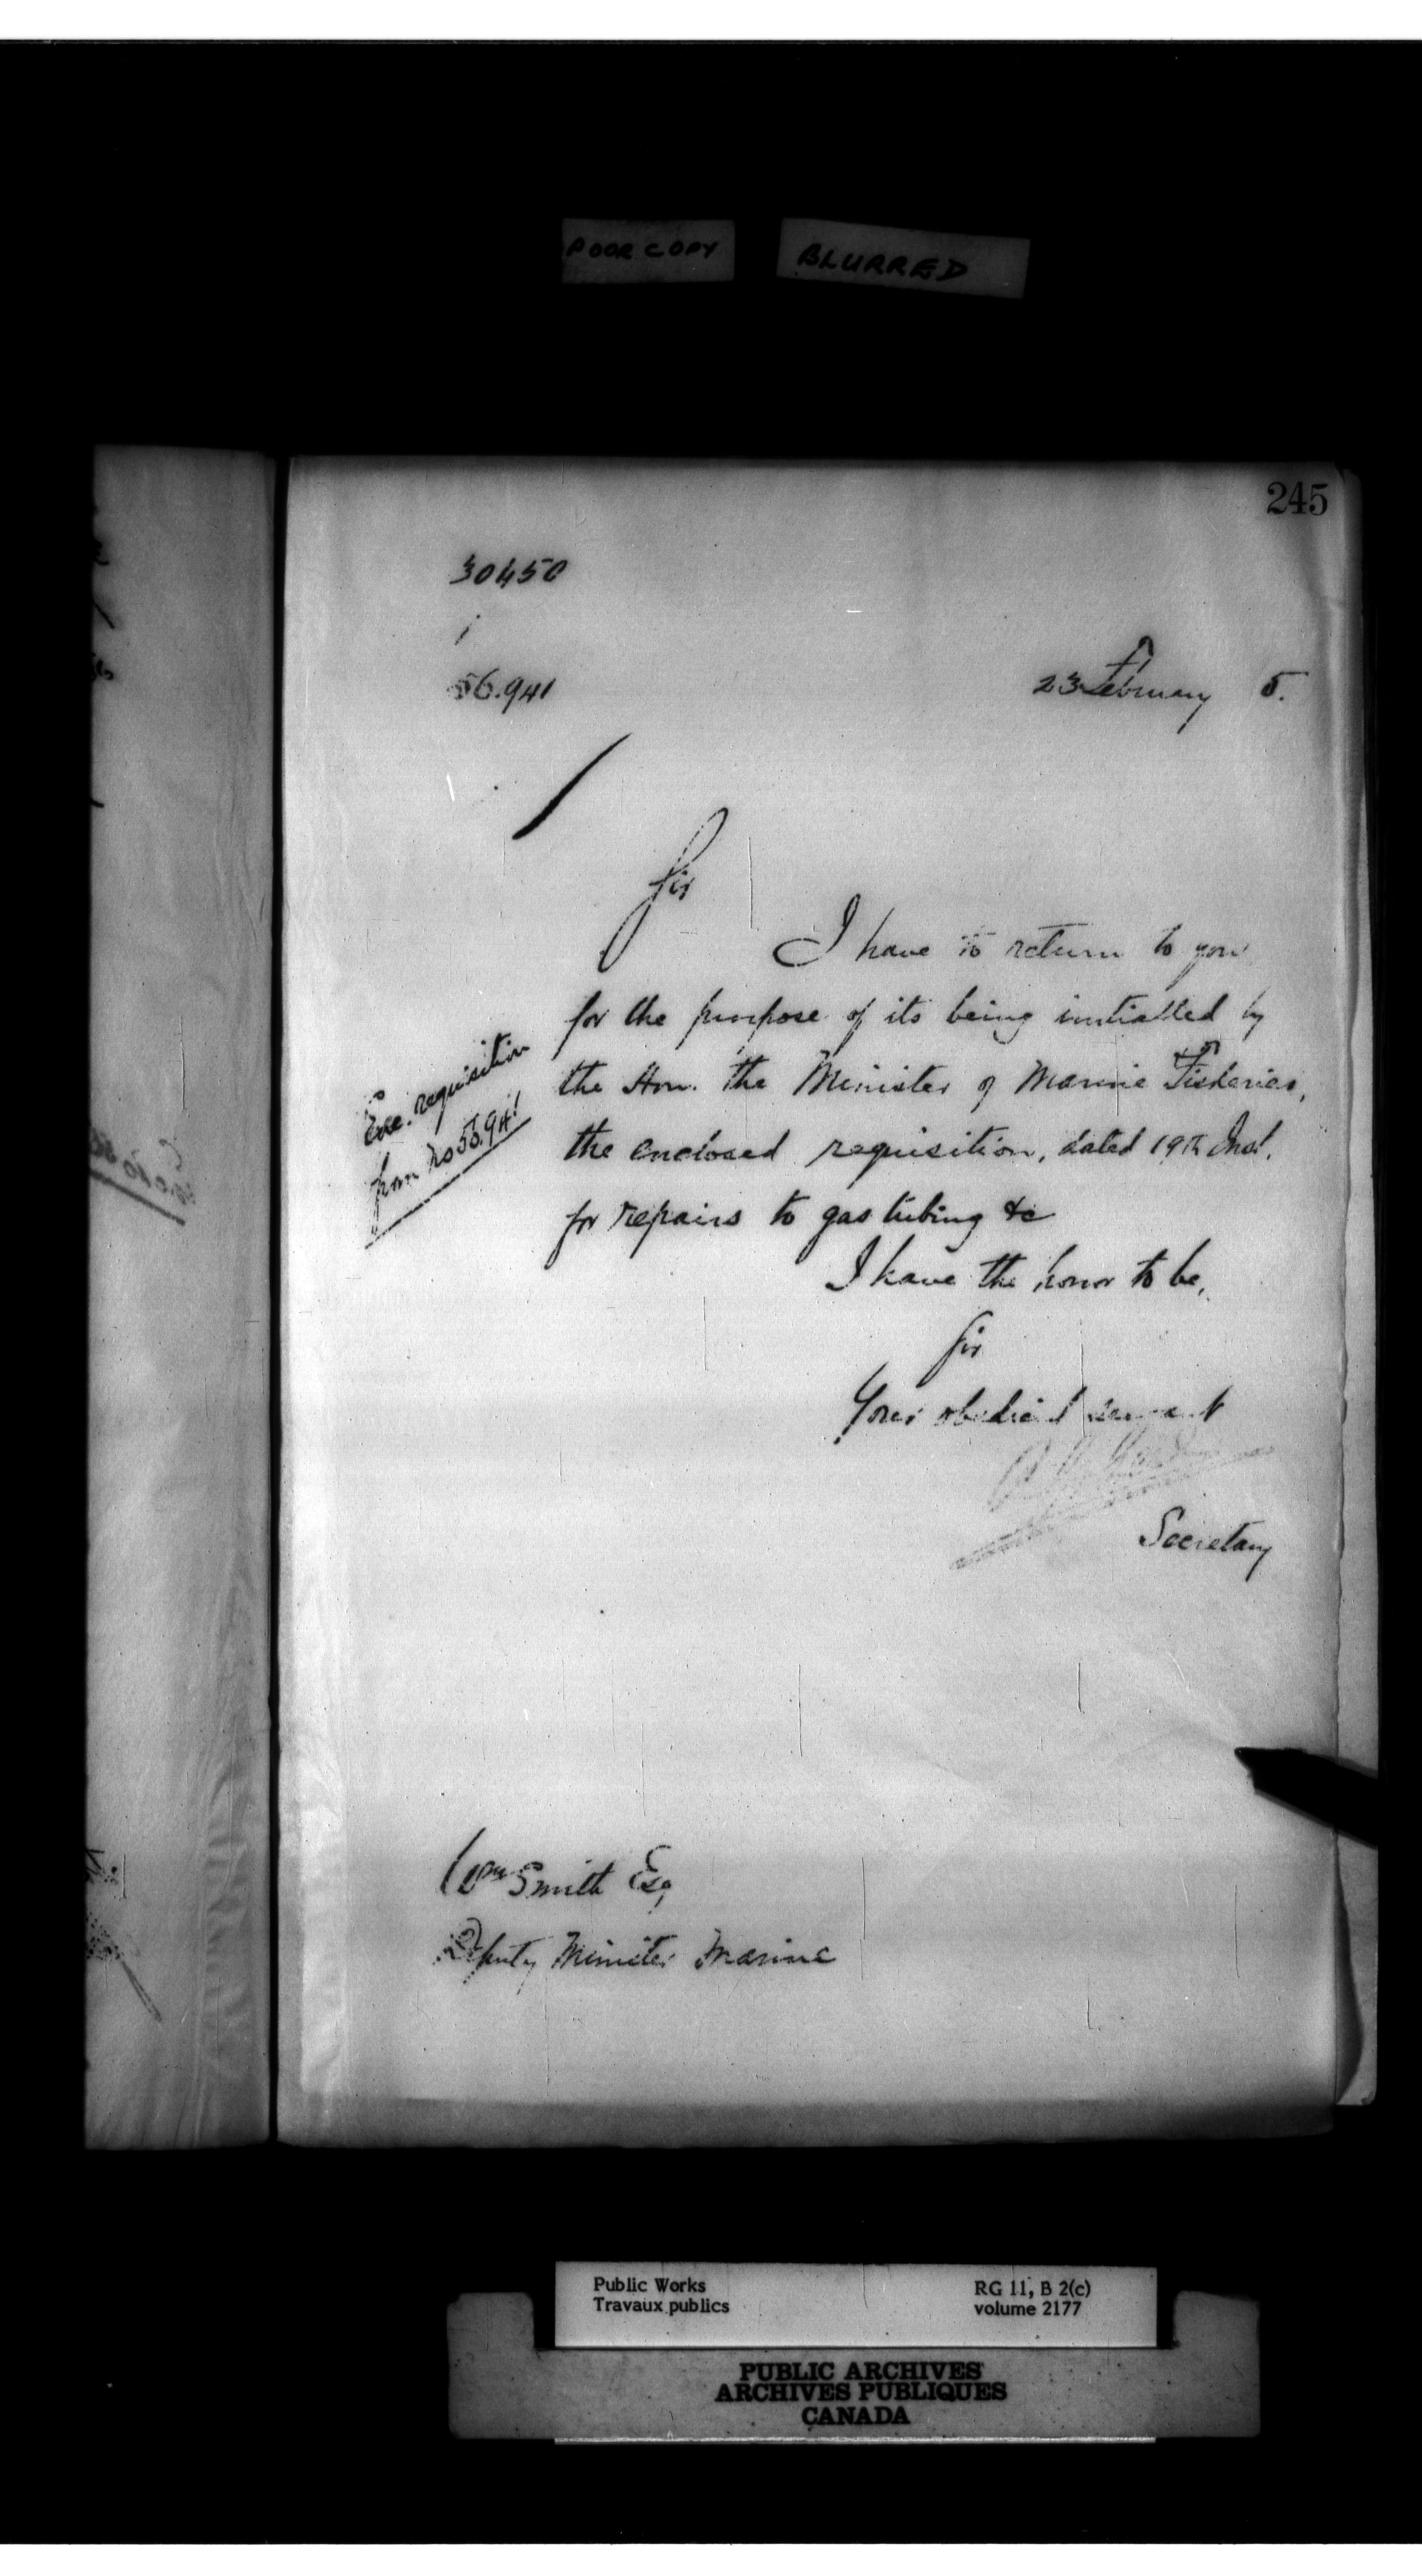 POOR COPY BLURRED
245
30450
56.941
23 February 5.
Sir
I have to return to you
for the purpose of its being initialled by
the Hon. the Minister of Marine & Fisheries,
the enclosed requisition, dated 19th Inst.
for repairs to gas tubing &c
Enc. requisition
from No 56.941
I have the honor to be,
Sir
Your obedient servant
Secretary
Wm Smith Esq
Deputy Minister Marine
Public Works
Travaux publics
RG 11, B 2(c)
volume 2177
PUBLIC ARCHIVES
ARCHIVES PUBLIQUES
CANADA